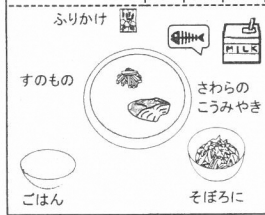 ふりかけ
MILK
すのもの
さわらの
こうみやき
ごはん
そぼろに